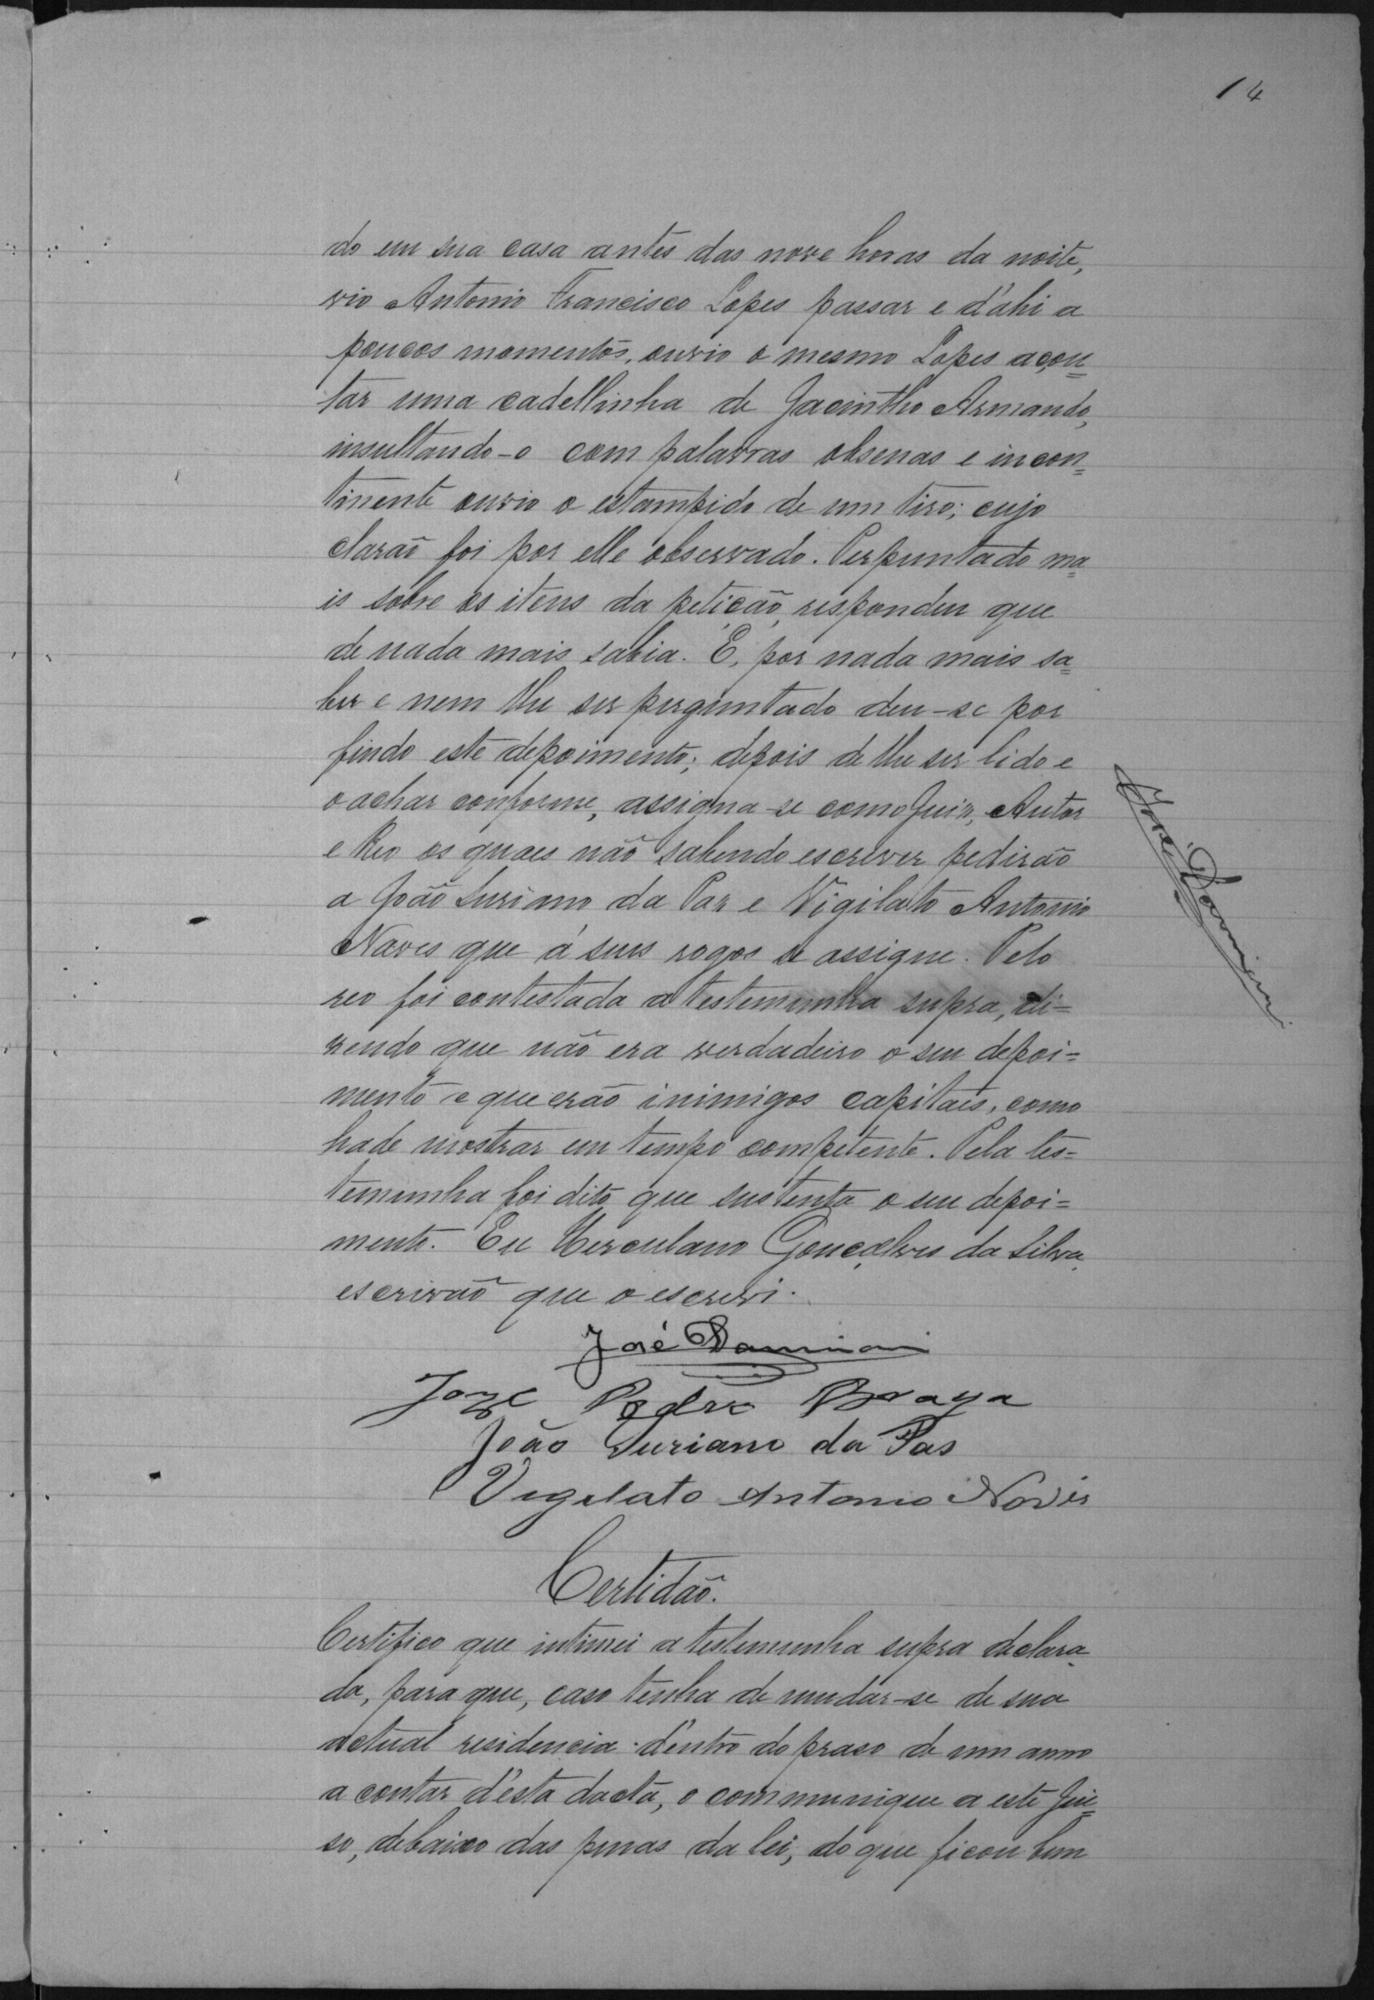 14
do em sua casa antes das nove horas da noite,
vio Antonio Francisco Lopes passar e d'ahi a
poucos momentos, ouvio o mesmo Lopes açou=
tar uma cadellinha de Jacintho Armando,
insultando-o com palavras obsenas e incon=
tinente ouvio o estampido de um tiro; cujo
clarão foi por elle observado. Perpuntado ma=
is sobre os itens da petição, respondeu que
de nada mais sabia. E, por nada mais sa=
ber e nem lhe ser perguntado deu-se por
findo este depoimento; depois de lhe ser lido e
o achar conforme, assigna-se como Juiz, Autor
e Reo os quaes não sabendo escrever pedirão
a João Suriano da Paz e Vigilato Antonio
Naves que á seus rogos se assigne. Pelo
reo foi contestada a testemunha supra, di=
zendo que não era verdadeiro o seu depoi=
mento e que erão inimigos capitaes, como
hade mostrar em tempo competente. Pela tes=
temunha foi dito que sustenta o seu depoi=
mento. Eu Herculano Gonçalves da Silva,
escrivão que o escrevi.
José Damiani
José Damiani
Joze Pedro Braga
João Suriano da Pas
Vegelato Antonio Noves
Certidão.
Certifico que intimei a testemunha supra declara=
da, para que, caso tenha de mudar-se de sua
actual residencia dentro do praso de um anno
a contar d'esta dacta, o communique a este Jui=
so, debaixo das penas da lei, do que ficou bem